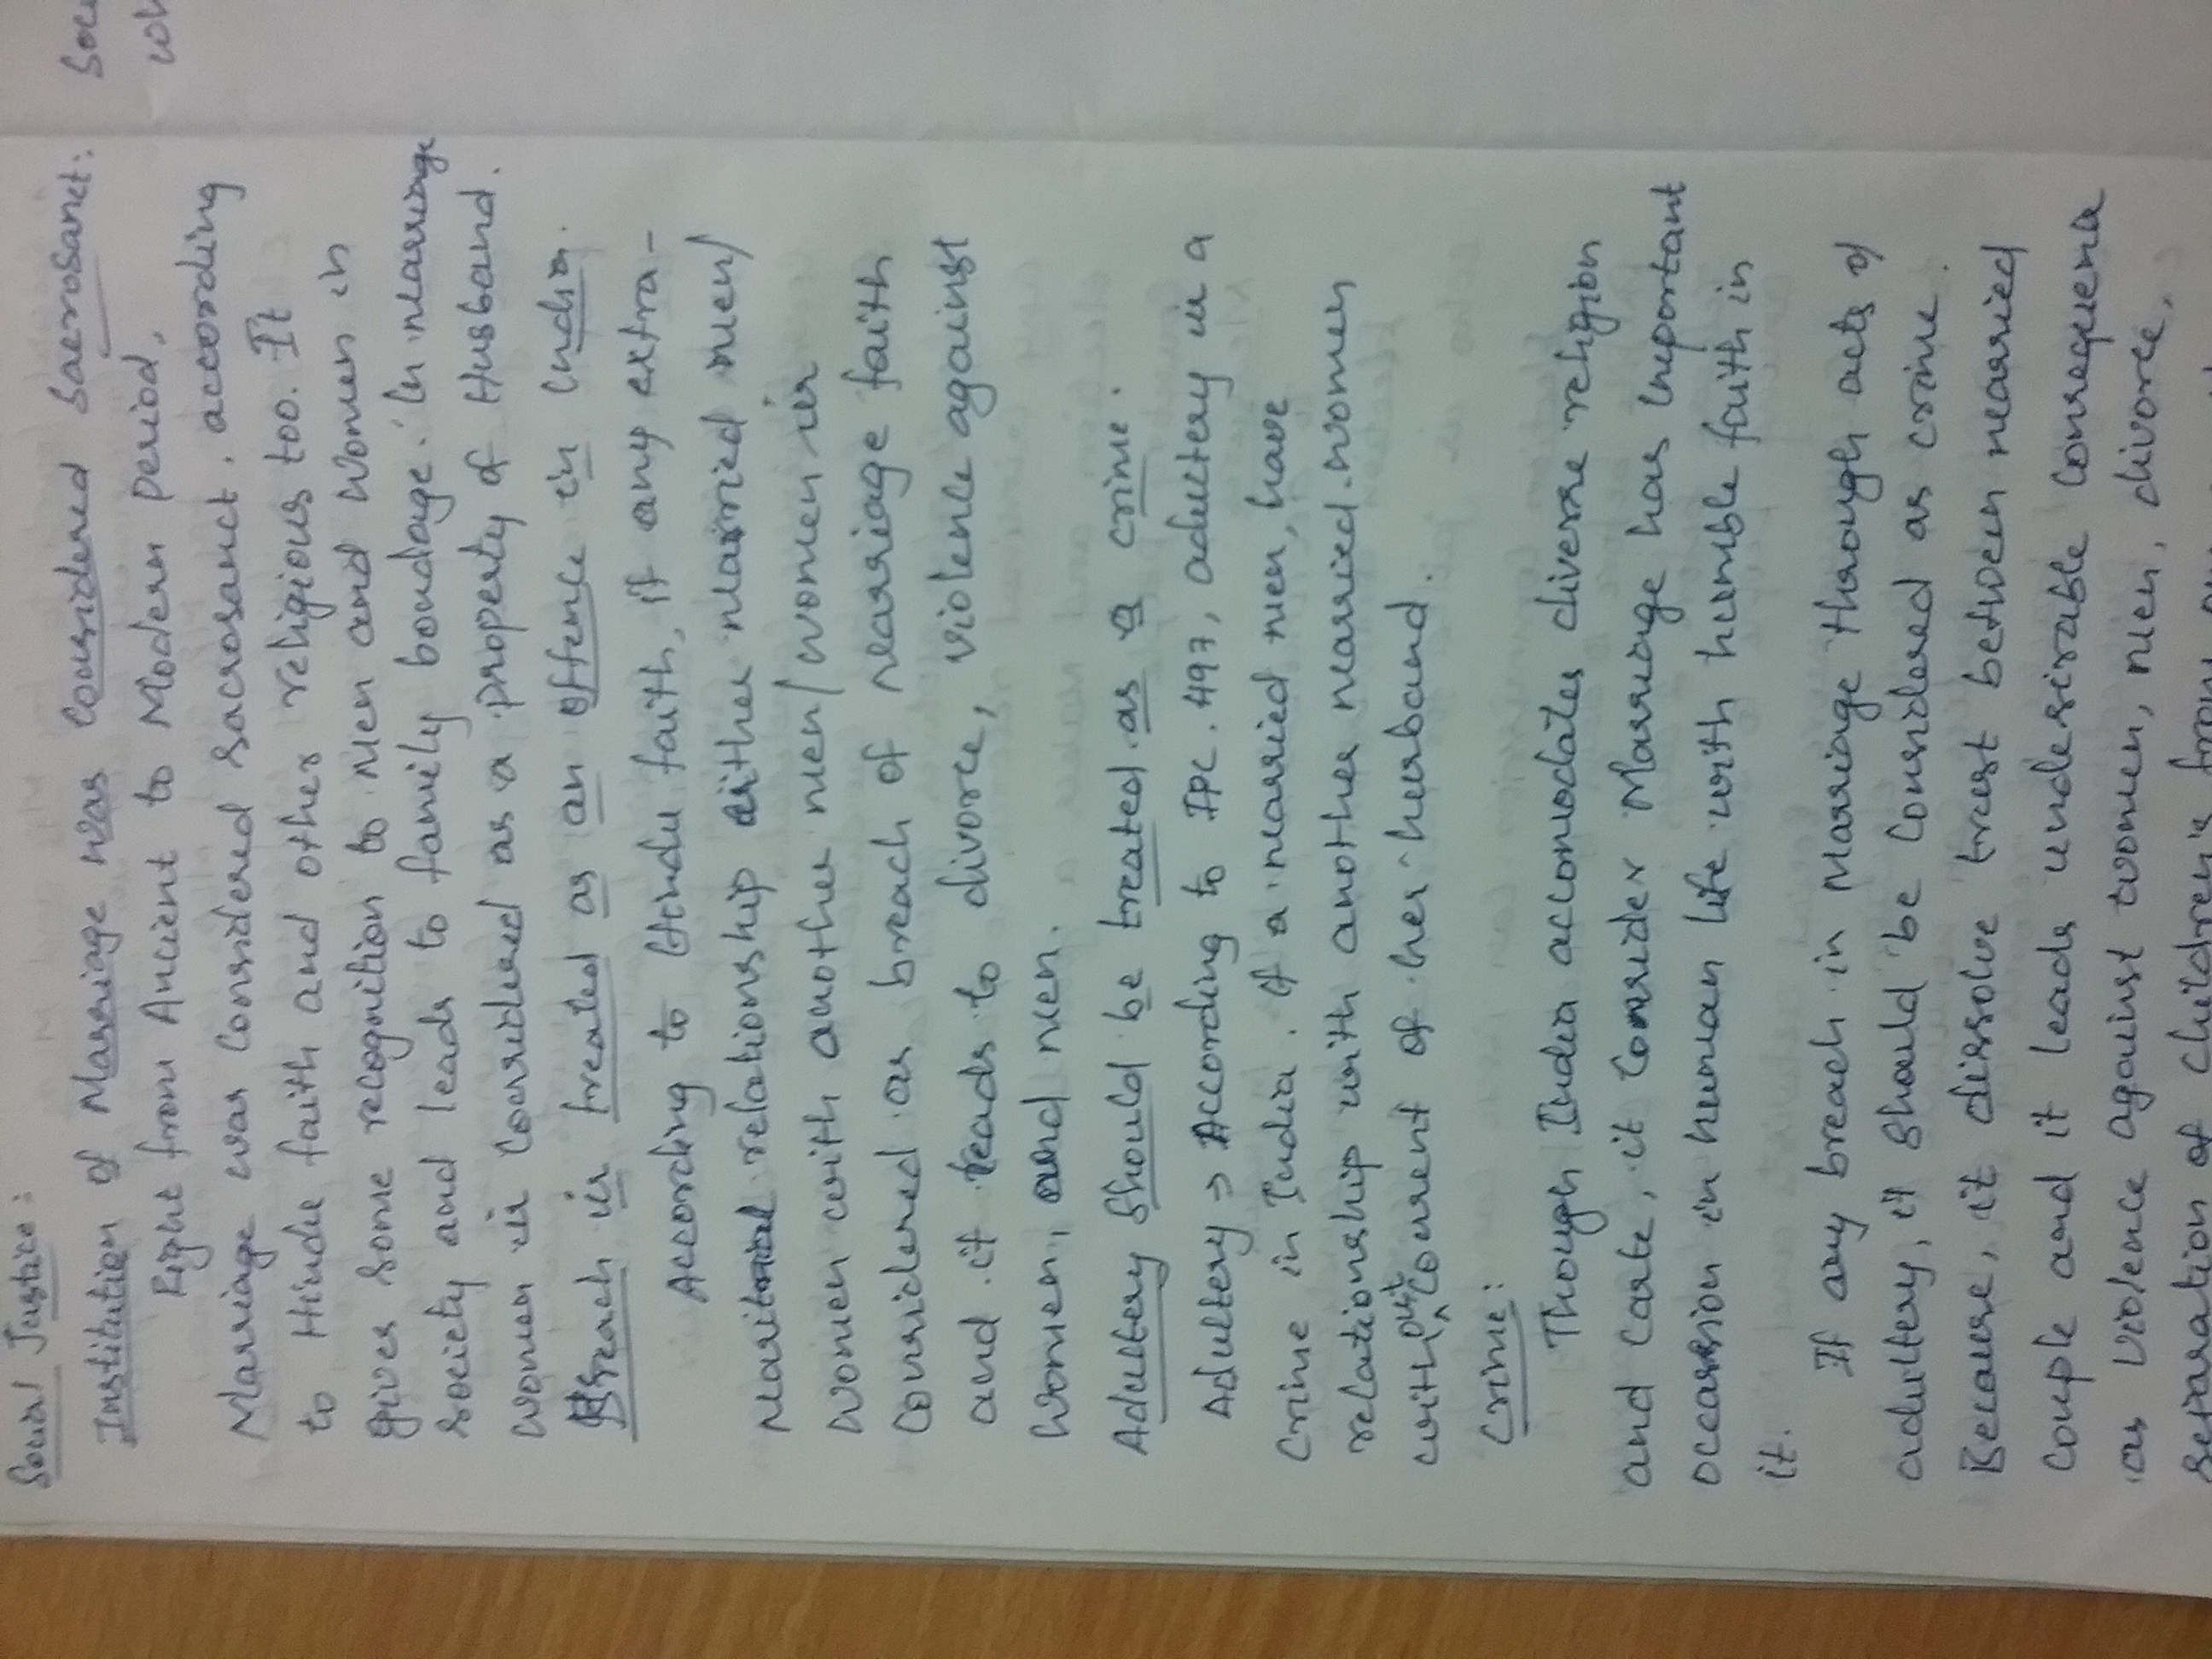 Social Justice:
Institution of Marriage was Considered Sacrosanct:
Right from Ancient to Modern period,
Marriage was Considered sacrosanct, according
to Hindu faith and other religious too. It
gives some recognition to Men and Women in
society and leads to family bondage. In marriage
women is Considered as a property of Husband.
Breach is treated as an offence in India.
According to Hindu faith, if any extra-
marital relationship either married men/
women with another men/women is
Considered as breach of marriage faith
and it leads to divorce, violence against
women, and men.
Adultery Should be treated as a crime.
Adultery → According to IPC.497, adultery is a
Crime in India. If a married men, have
relationship with another married women
without Consent of her husband.
Crime:
Though India accomodates diverse religion
and Caste, it Consider Marriage has important
occassion in human life with humble faith in
it.
If any breach in Marriage through acts of
adultery, it should be Considered as crime.
Because, it dissolve trust between married
Couple and it leads undesirable Consequence
as violence against women, men, divorce,
separation of Children's from
Soc
wh